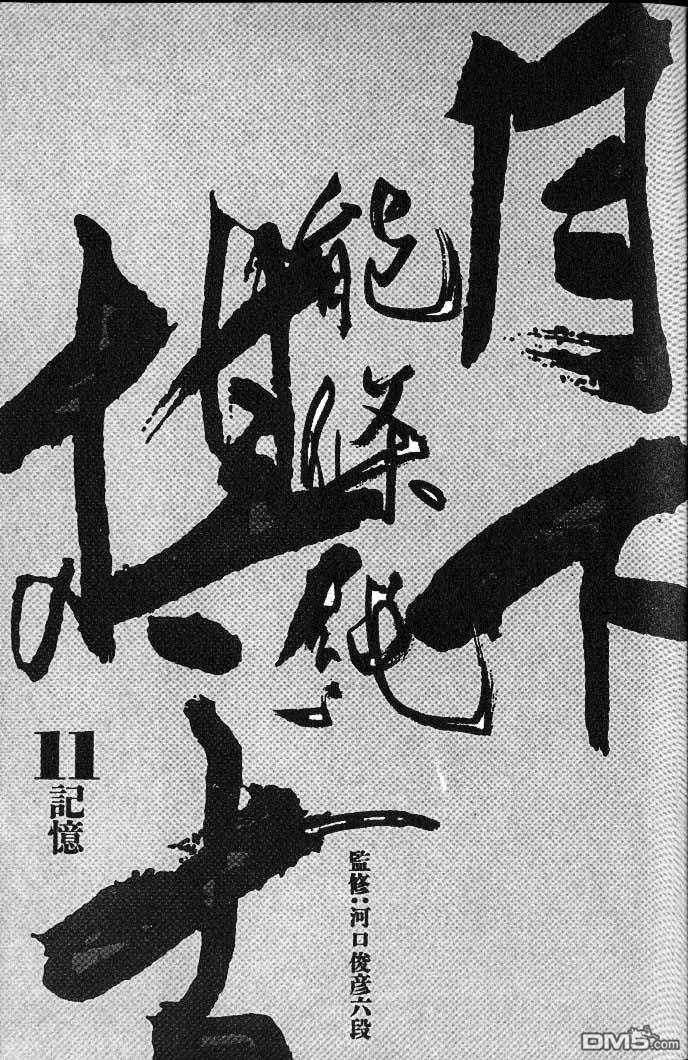 月下
の
棋士
能條純一
11
記憶
監修：河口俊彦六段
DM5.com